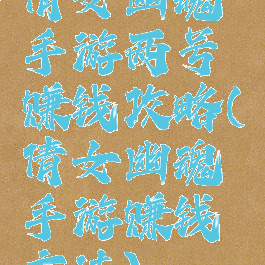 倩女幽魂
手游两号
赚钱攻略(
倩女幽魂
手游赚钱
方法)